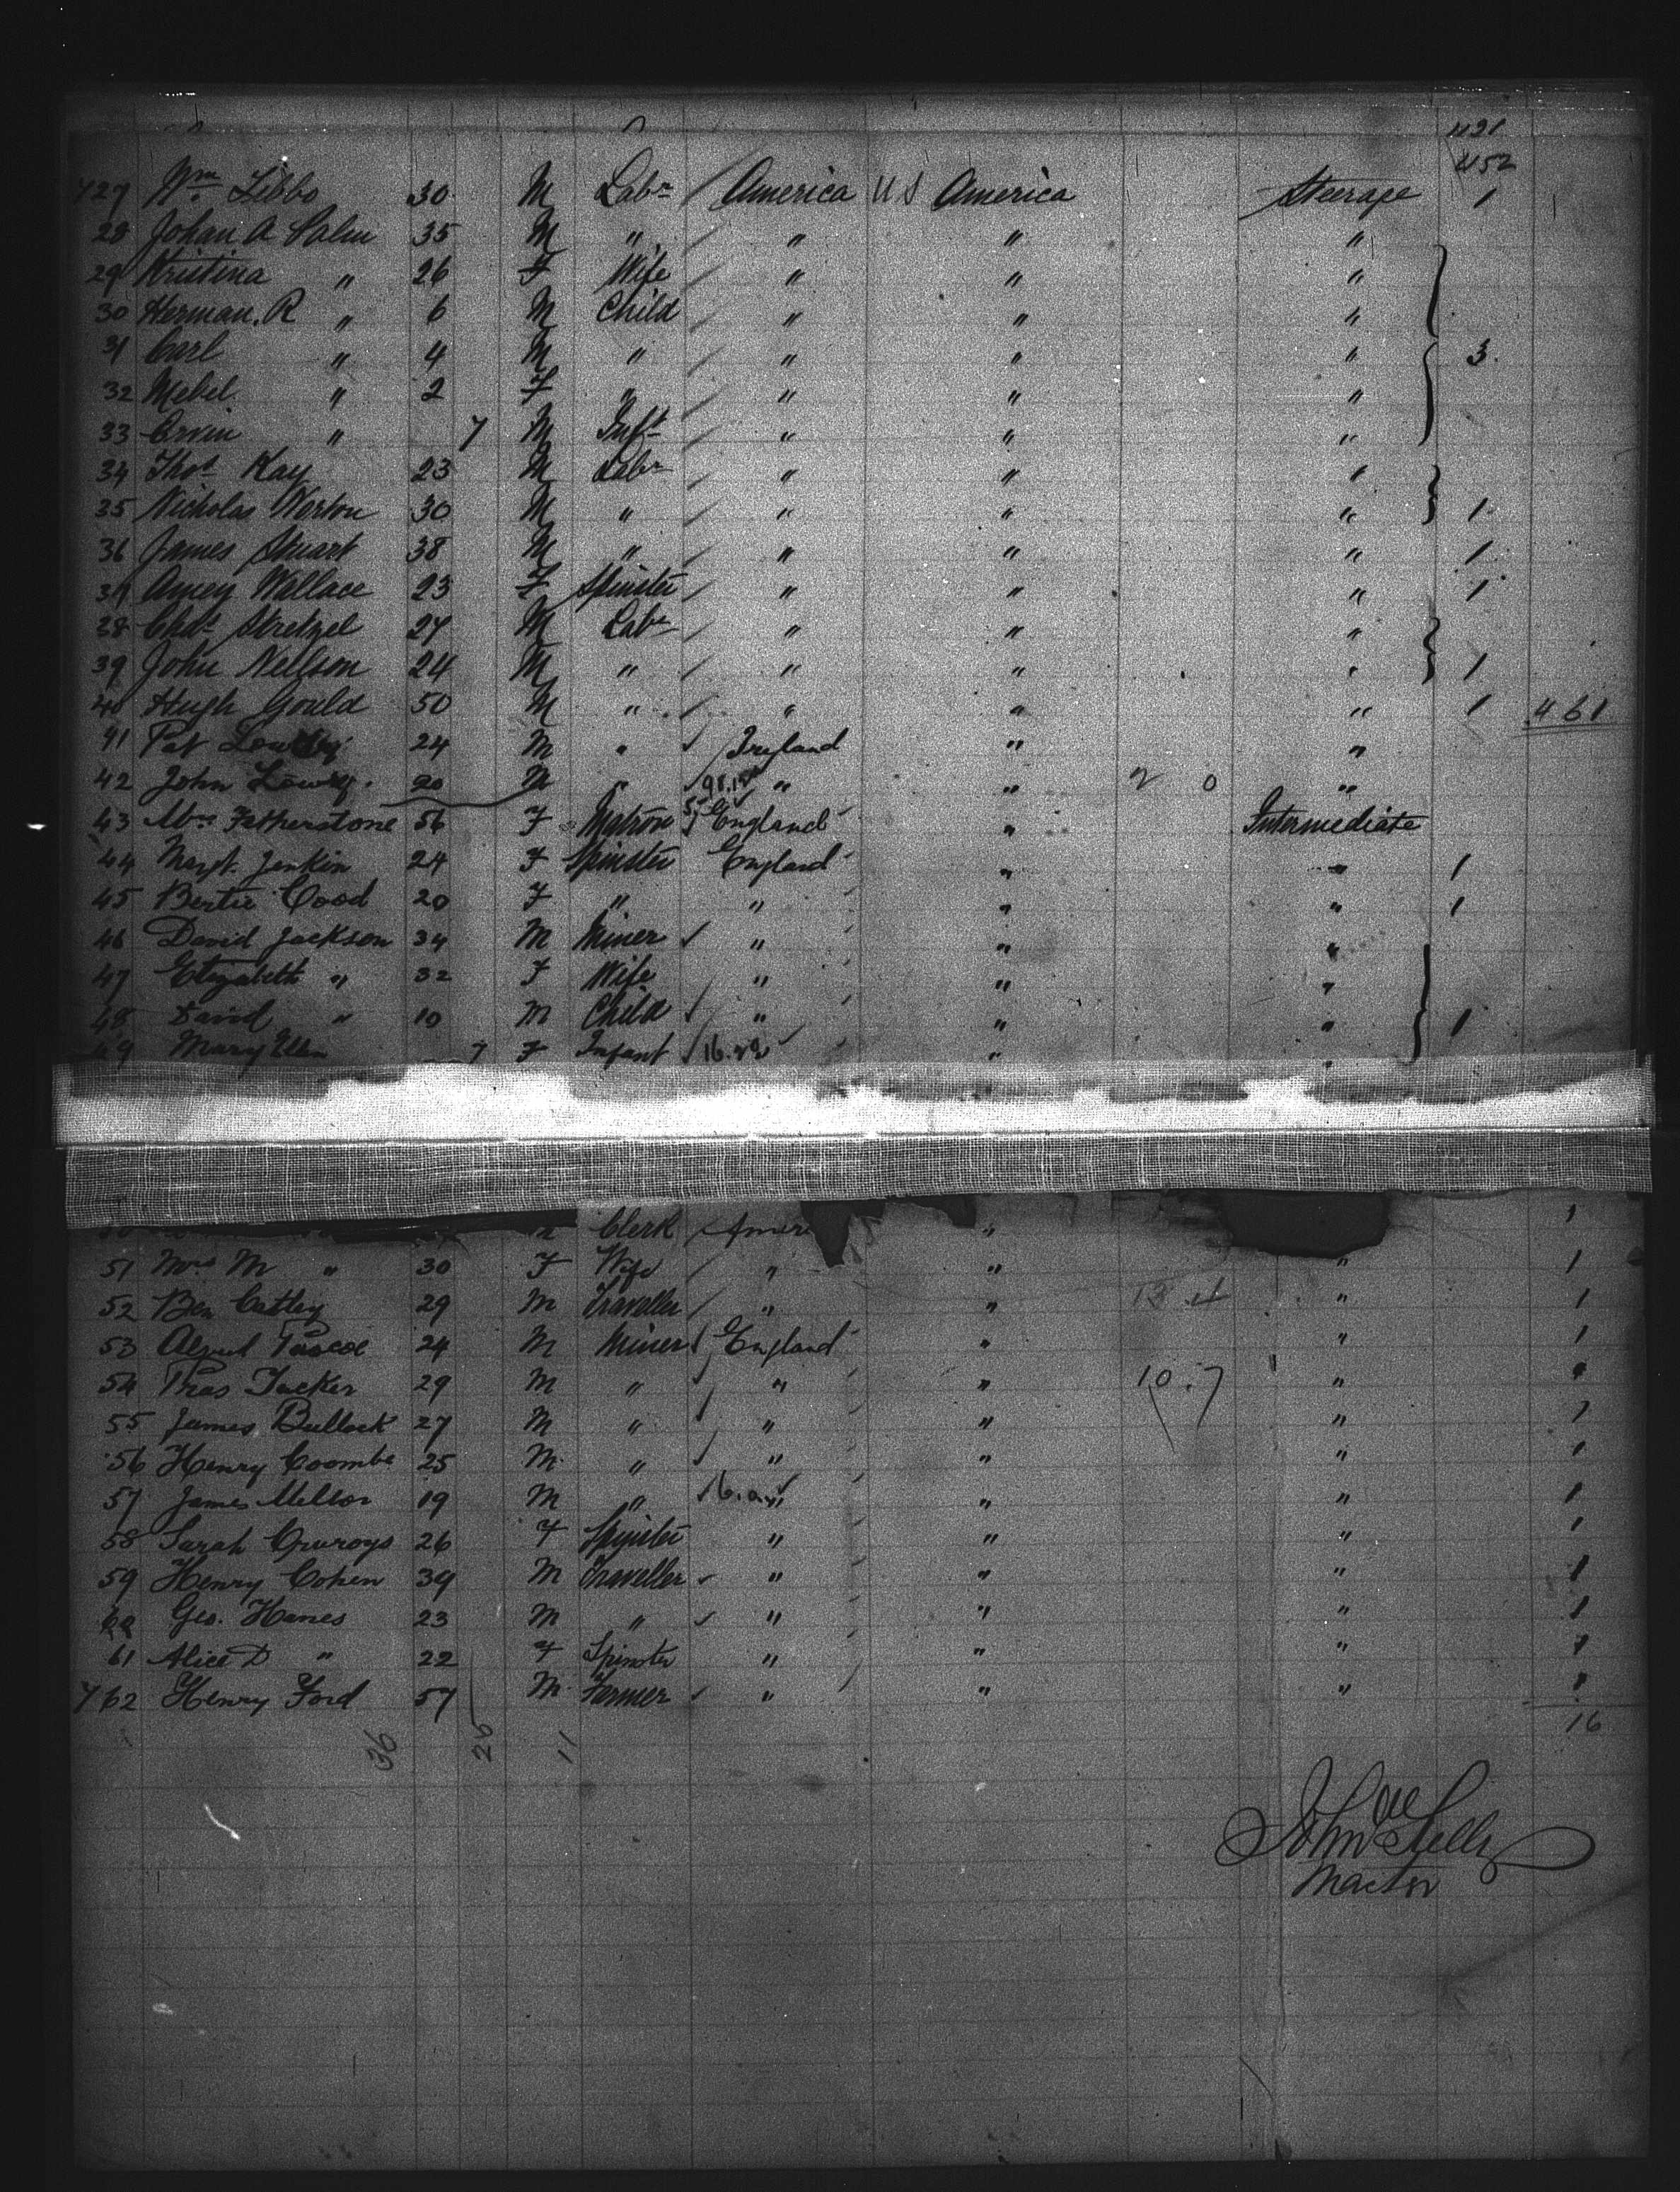 421
452
727 Wm Libbo 30 M Labr America US America Steerage 1
28 Johan A Salm 35 M " " " "
29 Kristina " 26 F Wife " " "
30 Herman. R " 6 M Child " " "
31 Carl " 4 M " " " " 3.
32 Mebel " 2 F " " " "
33 Ervin " 7 M Inft " " "
34 Thos Kay 23 M Labr " " "
35 Nicholas Worton 30 M " " " " 1
36 James Stuart 38 M " " " " 1
37 Amey Wallace 23 F Spinster " " " 1
38 Chas Stretzel 27 M Labr " " "
39 John Nellson 24 M " " " " 1
40 Hugh Gould 50 M " " " " 1 461
41 Pat 24 M " Ireland " "
42 John Lowry. 20 M " 98. " " 2 0 "
43 Mrs Fetherstone 56 F Matron England " Intermediate
44 Margt. Jenkin 24 F Spinster England " " 1
45 Bertie Cood 20 F " " " " 1
46 David Jackson 34 M Miner " " "
47 Elizabeth " 32 F Wife " " "
48 David " 10 M Child " " " 1
49 Mary Ellen 7 F Infant 16. " "
Clerk Amer " 1
51 Mrs M " 30 F Wife " " " 1
52 Ben Cattey 29 M Traveller " " 13 4 " 1
53 Pascoe 24 M Miner England " " 1
54 Tucker 29 M " " " 10.7 " 1
55 James Bullock 27 M " " " " 1
56 Henry Coombe 25 M. " " " " 1
57 James Mellor 19 M " " " " 1
58 Sarah 26 F Spinster " " " 1
59 Henry Cohen 39 M Traveller " " " 1
60 Geo. Hanes 23 M " " " " 1
61 Alice D " 22 F Spinster " " " 1
762 Henry Ford 57 M. Farmer " " " 1
36 26 11 16
John
Master